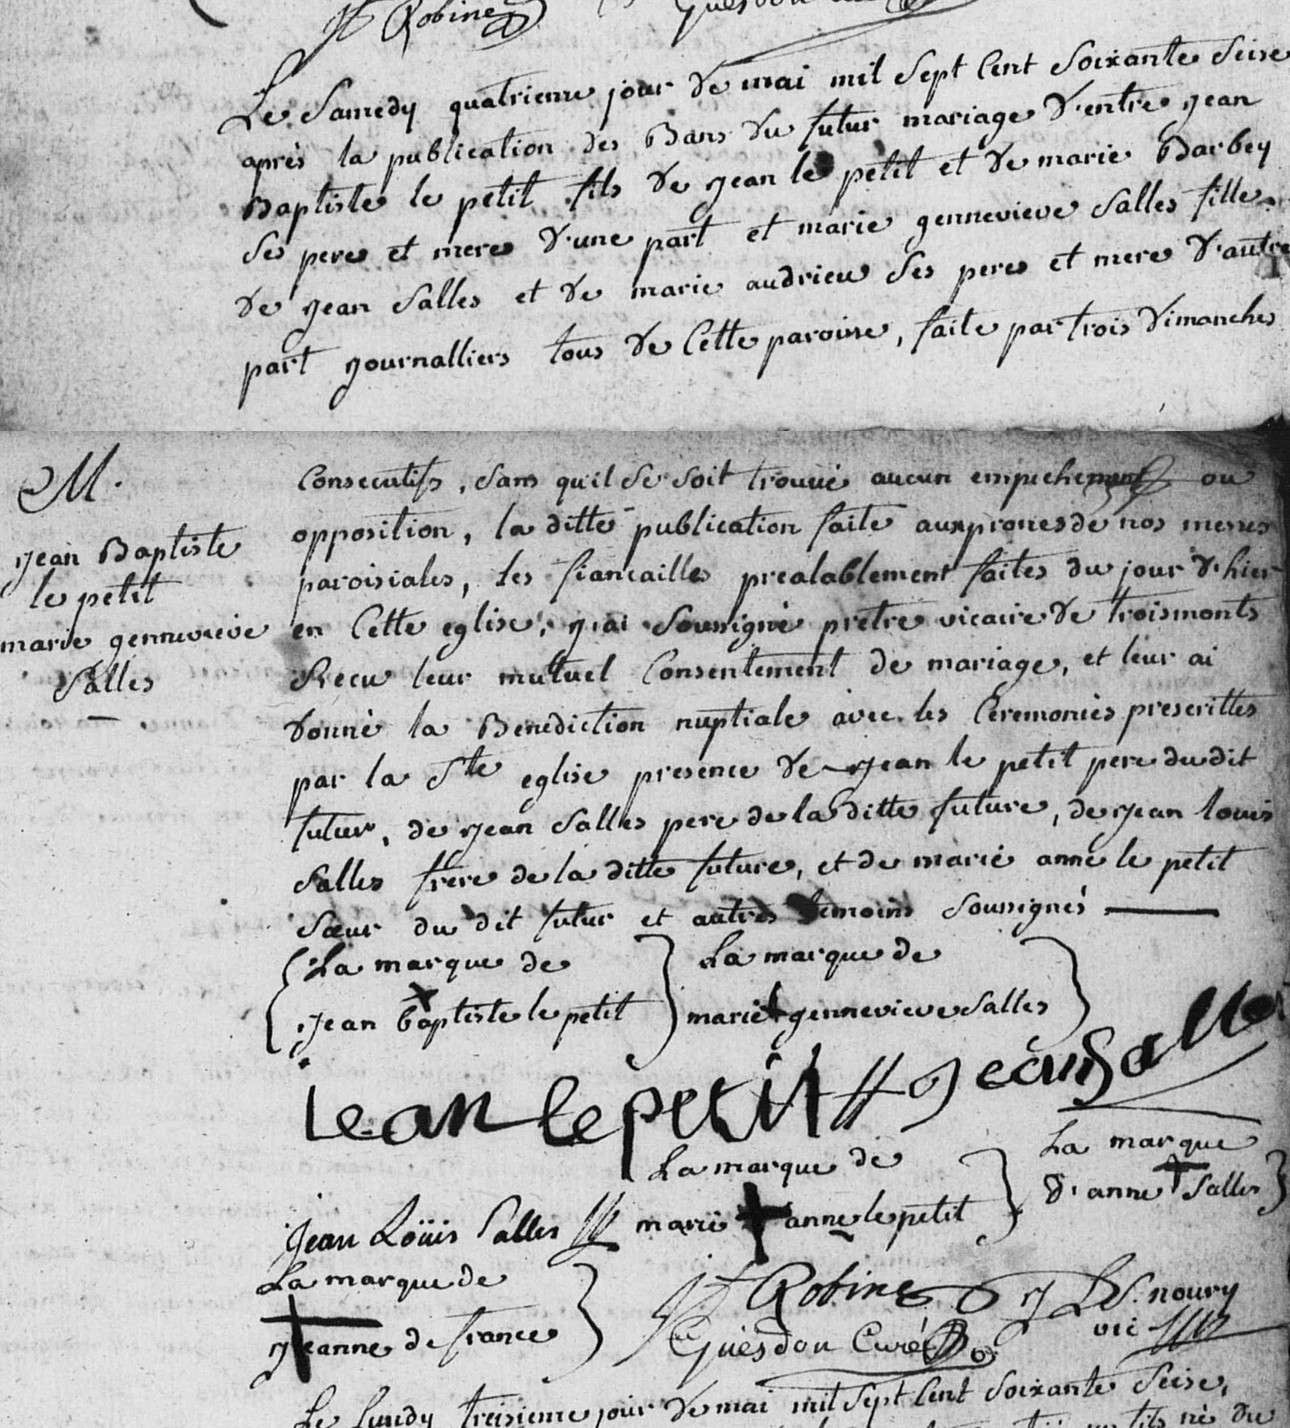 Robine Guesdon
Le Samedy quatrieme jour de mai mil sept Cent Soixante Seise
après la publication des Bans du futur mariage d'entre jean
Baptiste le petit fils de jean le petit et de marie Barbey
Ses pere et mere d'une part et marie gennevieve Salles fille
de jean Salles et de marie audrieu Ses peres et mere d'autre
part journalliers tous de Cette paroisse, faite par trois Dimanches
M.
jean Baptiste
le petit
marie gennevieve
Salles
Consecutifs, Sans qu'il Se Soit trouvé aucun empechement ou
opposition, la ditte publication faite aux prones de nos messes
paroisiales, les fiancailles prealablement faites du jour d'hier
en Cette eglise, j'ai Soussigné pretre vicaire de troismonts
Recu leur mutuel Consentement de mariage, et leur ai
donné la Benediction nuptiale avec les Ceremonies prescrittes
par la Ste eglise presence de jean le petit pere du dit
futur, de jean Salles pere de la ditte future, de jean louis
Salles frere de la ditte future, et de marie anne le petit
Sœur du dit futur et autres temoins Soussignés
La marque de
jean baptiste le petit
La marque de
marie gennevieve Salles
jean le petit jean Salles
La marque de
marie anne le petit
La marque
d'anne Salles
Jean Loüis Salles
La marque de
jeanne de france
Robine
J LeS. noury
vic
Guesdon Curé
Le Lundy treisieme jour de mai mil Sept Cent Soixante Seise,
fils né du